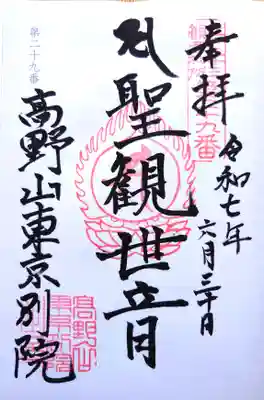 奉拝
令和七年
六月三十日
聖観世音
高野山東京別院
第二十九番